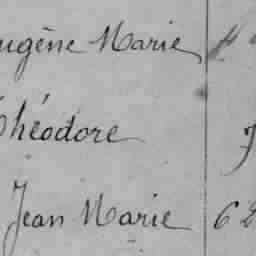 ugène Marie
Théodore
Jean Marie 62